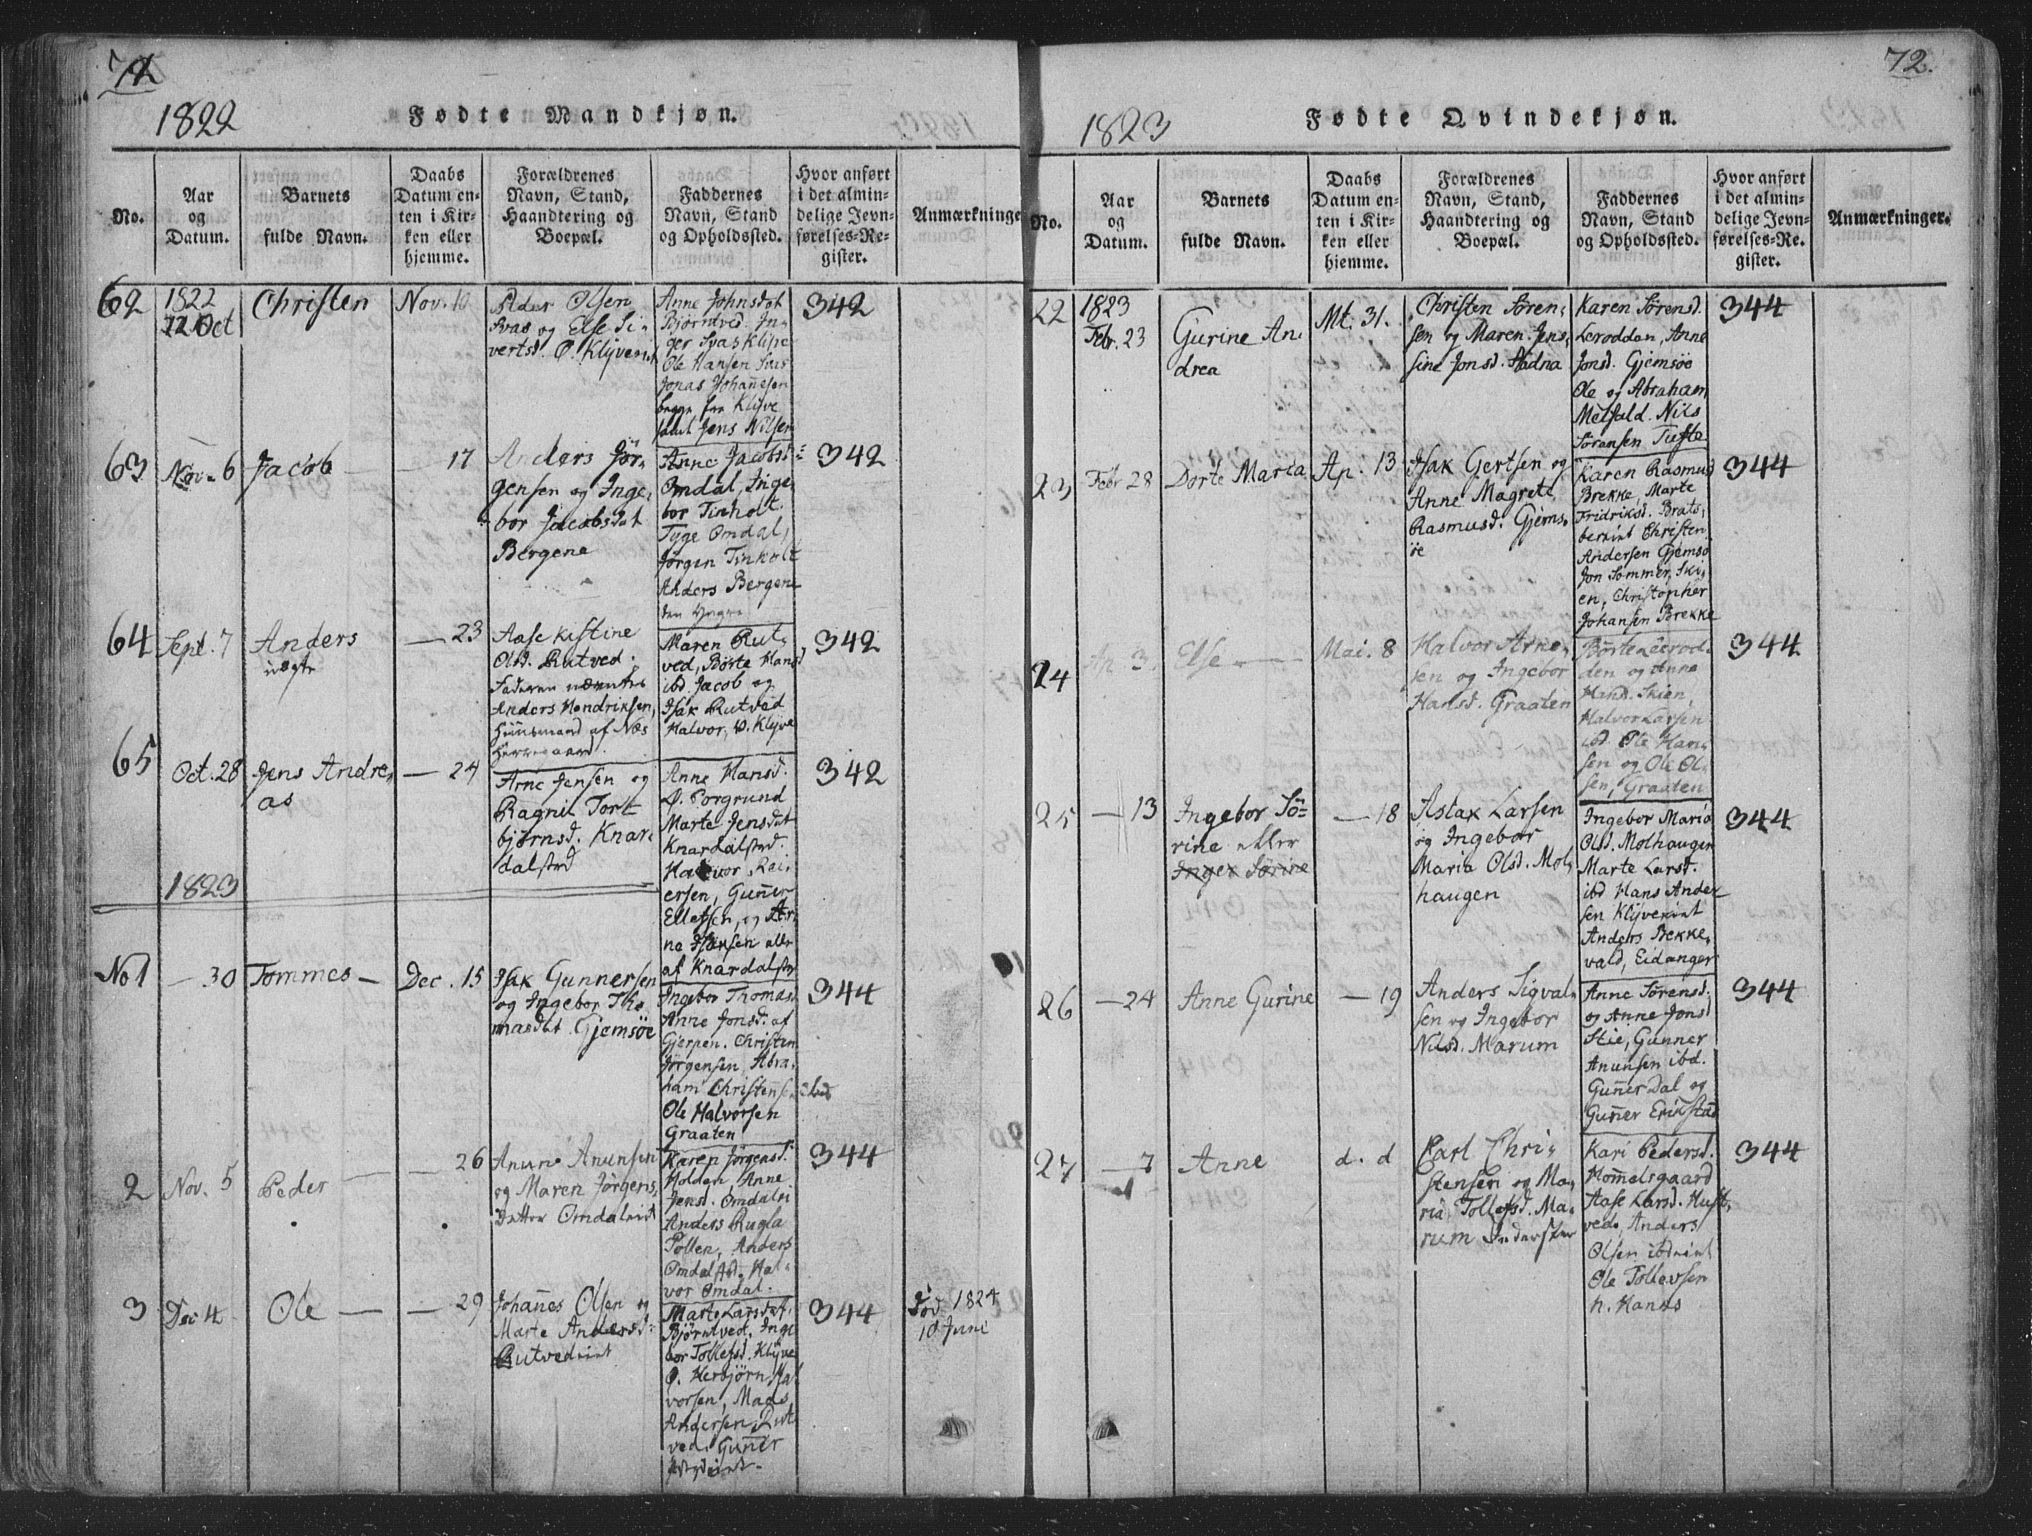 72
1822
Fødte Mandkjøn.
No.
Aar
og
Datum.
Barnets
fulde Navn.
Daabs
Datum en-
ten i Kir-
ken eller
hjemme.
Forældrenes
Navn, Stand,
Haandtering og
Boepæl.
Faddernes
Navn, Stand
og Opholdssted.
Hvor anført
i det almin-
delige Jevn-
førelses-Re-
gister.
Anmærkninge
62
1822
12 Oct
Christen
Nov. 10
Peder Olsen
Svas og Else Si-
vertsd. Ø. Klyverei
Anne Johnsdat
Bjørntved. In-
ger Svas Klyve
Ole Hansen
Jonas Johanesen
begge fra Klyve
samt Jens Nilsen
342
63
Nov. 6
Jacob
— 17
Anders Jør-
gensen og Inge-
bor Jacobsdat
Bergene
Anne Jacobsd:
Omdal, Inge-
bor Tinholt.
Tyge Omdal,
Jørgen Tinholt
Anders Bergene
den Yngre
342
64
Sept. 7
Anders
uægte
— 23
Aase Kistine
Olsd. Rutved.
Faderen nævntes
Anders Hendriksen,
Huusmand af Næs
Herregaard.
Maren Rut-
ved, Børte Hansd
ibd. Jacob og
Isak Rutved
Halvor, V. Klyve
342
65
Oct. 28
Jens Andre-
as
— 24
Arne Jensen og
Ragnil Tort
bjørnsd. Knar-
dalstrd
Anne Hansd.
Ø. Porgrund
Marte Jensdat
Knardalstrd.
Halvor Rei-
ersen, Guner
Ellefsen, og Ar-
ne Hansen alle
af Knardalstr
342
1823
No 1
— 30
Tommes —
Dec. 15
Isak Gunnersen
og Ingebor Tho-
masdat. Gjemsøe
Ingebor Thomas
Anne Jonsd. af
Gjerpen. Christen
Jørgensen, Abra-
ham Christensen ibd
Ole Halvorsen
Graaten
344
2
Nov. 5
Peder
— 26
Anund Anunsen
og Maren Jørgens-
Datter Omdaleiet
Karen Jørgensd.
Holden, Anne
Jensd. Omdalei
Anders Rugla
Pollen, Anders
Omdal Ad. Hal-
vor Omdal.
344
3
Dec 4
Ole —
— 29
Johanes Olsen og
Marte Andersd:
Rutvedeiet
Marte Larsdat.
Bjørntvedt, Inge
bor Tollefsd. Klyve
Ø. Herbjørn Hal
vorsen, Mads
Andersen, Rut
ved. Guner
344
Død 1824
10 Juni
72.
1823
Fødte Qvindekjøn.
No.
Aar
og
Datum.
Barnets
fulde Navn.
Daabs
Datum en-
ten i Kir-
ken eller
hjemme.
Forældrenes
Navn, Stand,
Haandtering og
Boepæl.
Faddernes
Navn, Stand
og Opholdssted.
Hvor anført
i det almin-
delige Jevn-
førelses-Re-
gister.
Anmærkninger.
22
1823
Febr. 23
Gurine An-
drea
Mt. 31.
Christen Søren-
sen og Maren Jens-
sine Jonsd. Aadna
Karen Sørensd.
Leroddan, Anne
Jonsd. Gjemsøe
Ole og Abraham
Melfald. Nils
Sørensen Tufte
344
23
Febr 28
Dorte Maria
Ap. 13
Isak Gertsen og
Anne Magrete
Rasmusd. Gjems-
øe
Karen Rasmusd
Brekke, Marte
Fridriksd. Brats-
bereiet Christen
Andersen Gjemsø
Jon Sommer, Ski-
en, Christopher
Johansen Brekke
344
24
Ap. 3.
Else —
Mai. 8
Halvor Arne-
sen og Ingebor
Hansd. Graaten
Børte Lerod-
den og Anne
Hansd. Skien
Halvor Larsen
ibd. Ole Han-
sen og Ole Ol-
sen, Graaten
344
25
— 13
Ingebor Sø-
rine eller
Inger Sørine
— 18
Aslax Larsen
og Ingebor
Maria Olsd. Mol-
haugen
Ingebor Maria
Olsd. Molhaugen
Marte Larsd.
ibd Hans Ander
sen Klyvereiet
Anders Bekke-
vald, Eidanger
344
26
— 24
Anne Gurine
— 19
Anders Sigval-
sen og Ingebor
Nilsd. Marum
Anne Sørensd.
og Anne Jons
Stie, Gunner
Anunsen ibd.
Guner Dal og
Guner Erikstad
344
27
— 7
Anne
d. d
Carl Chri-
stensen og Ma-
ria Tollefsd. Ma-
rum Inderster
Kari Pedersd.
Homelsgaard
Aase Larsd. Hust-
ved, Anders
Olsen ibdeiet
Ole Tollevsen
h. Hanas
344